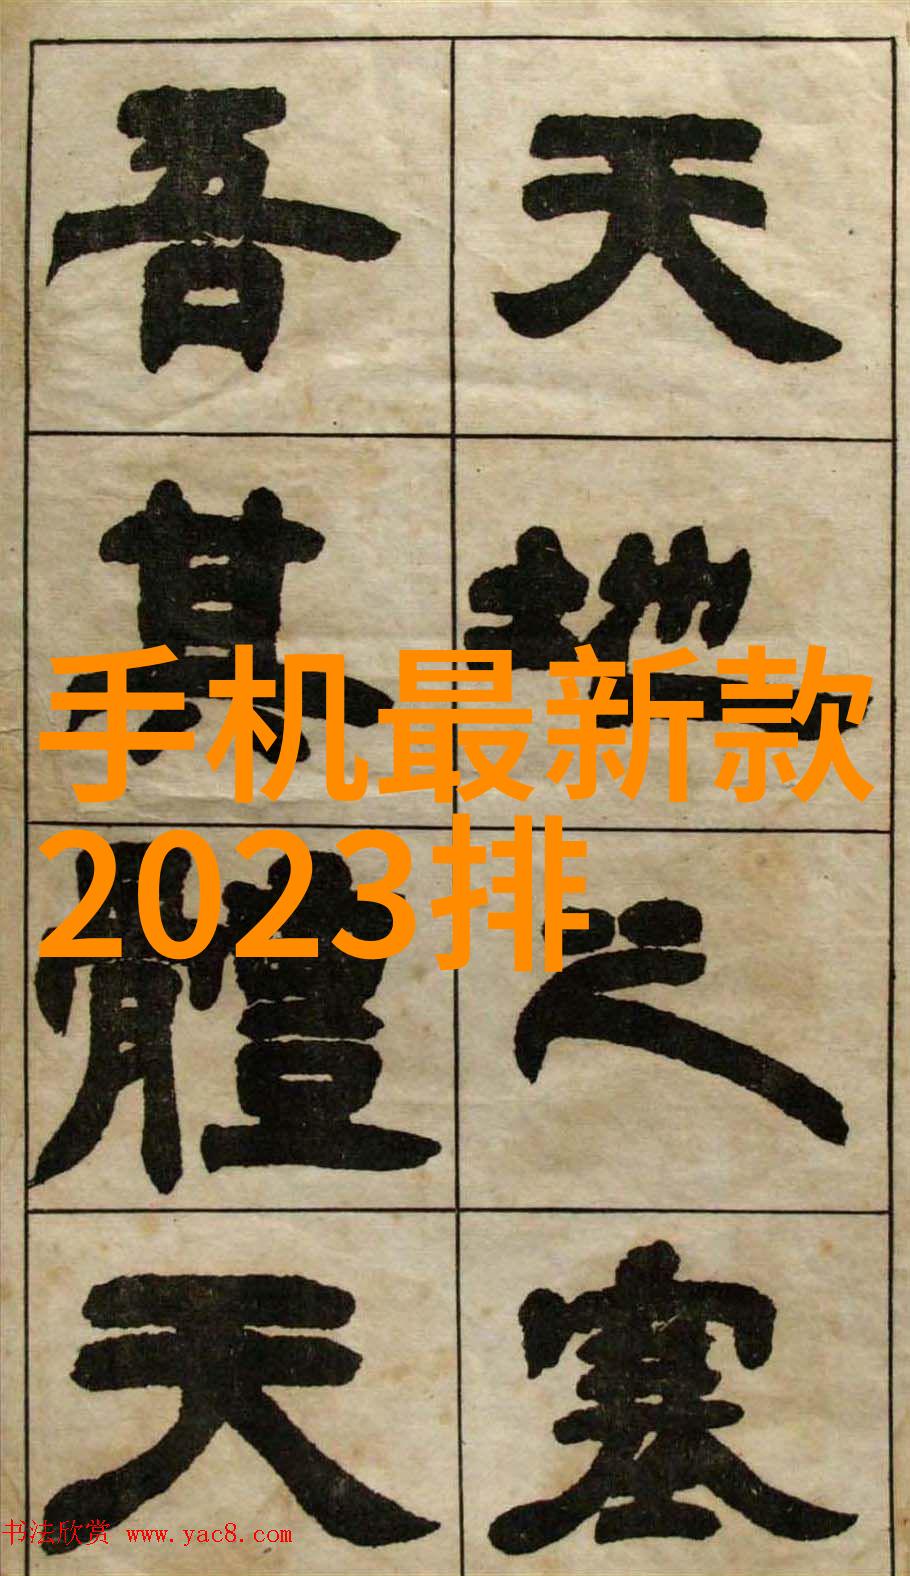 天地之塞
吾其體天
手机最新款
2023排
书法欣赏 www.yac8.com